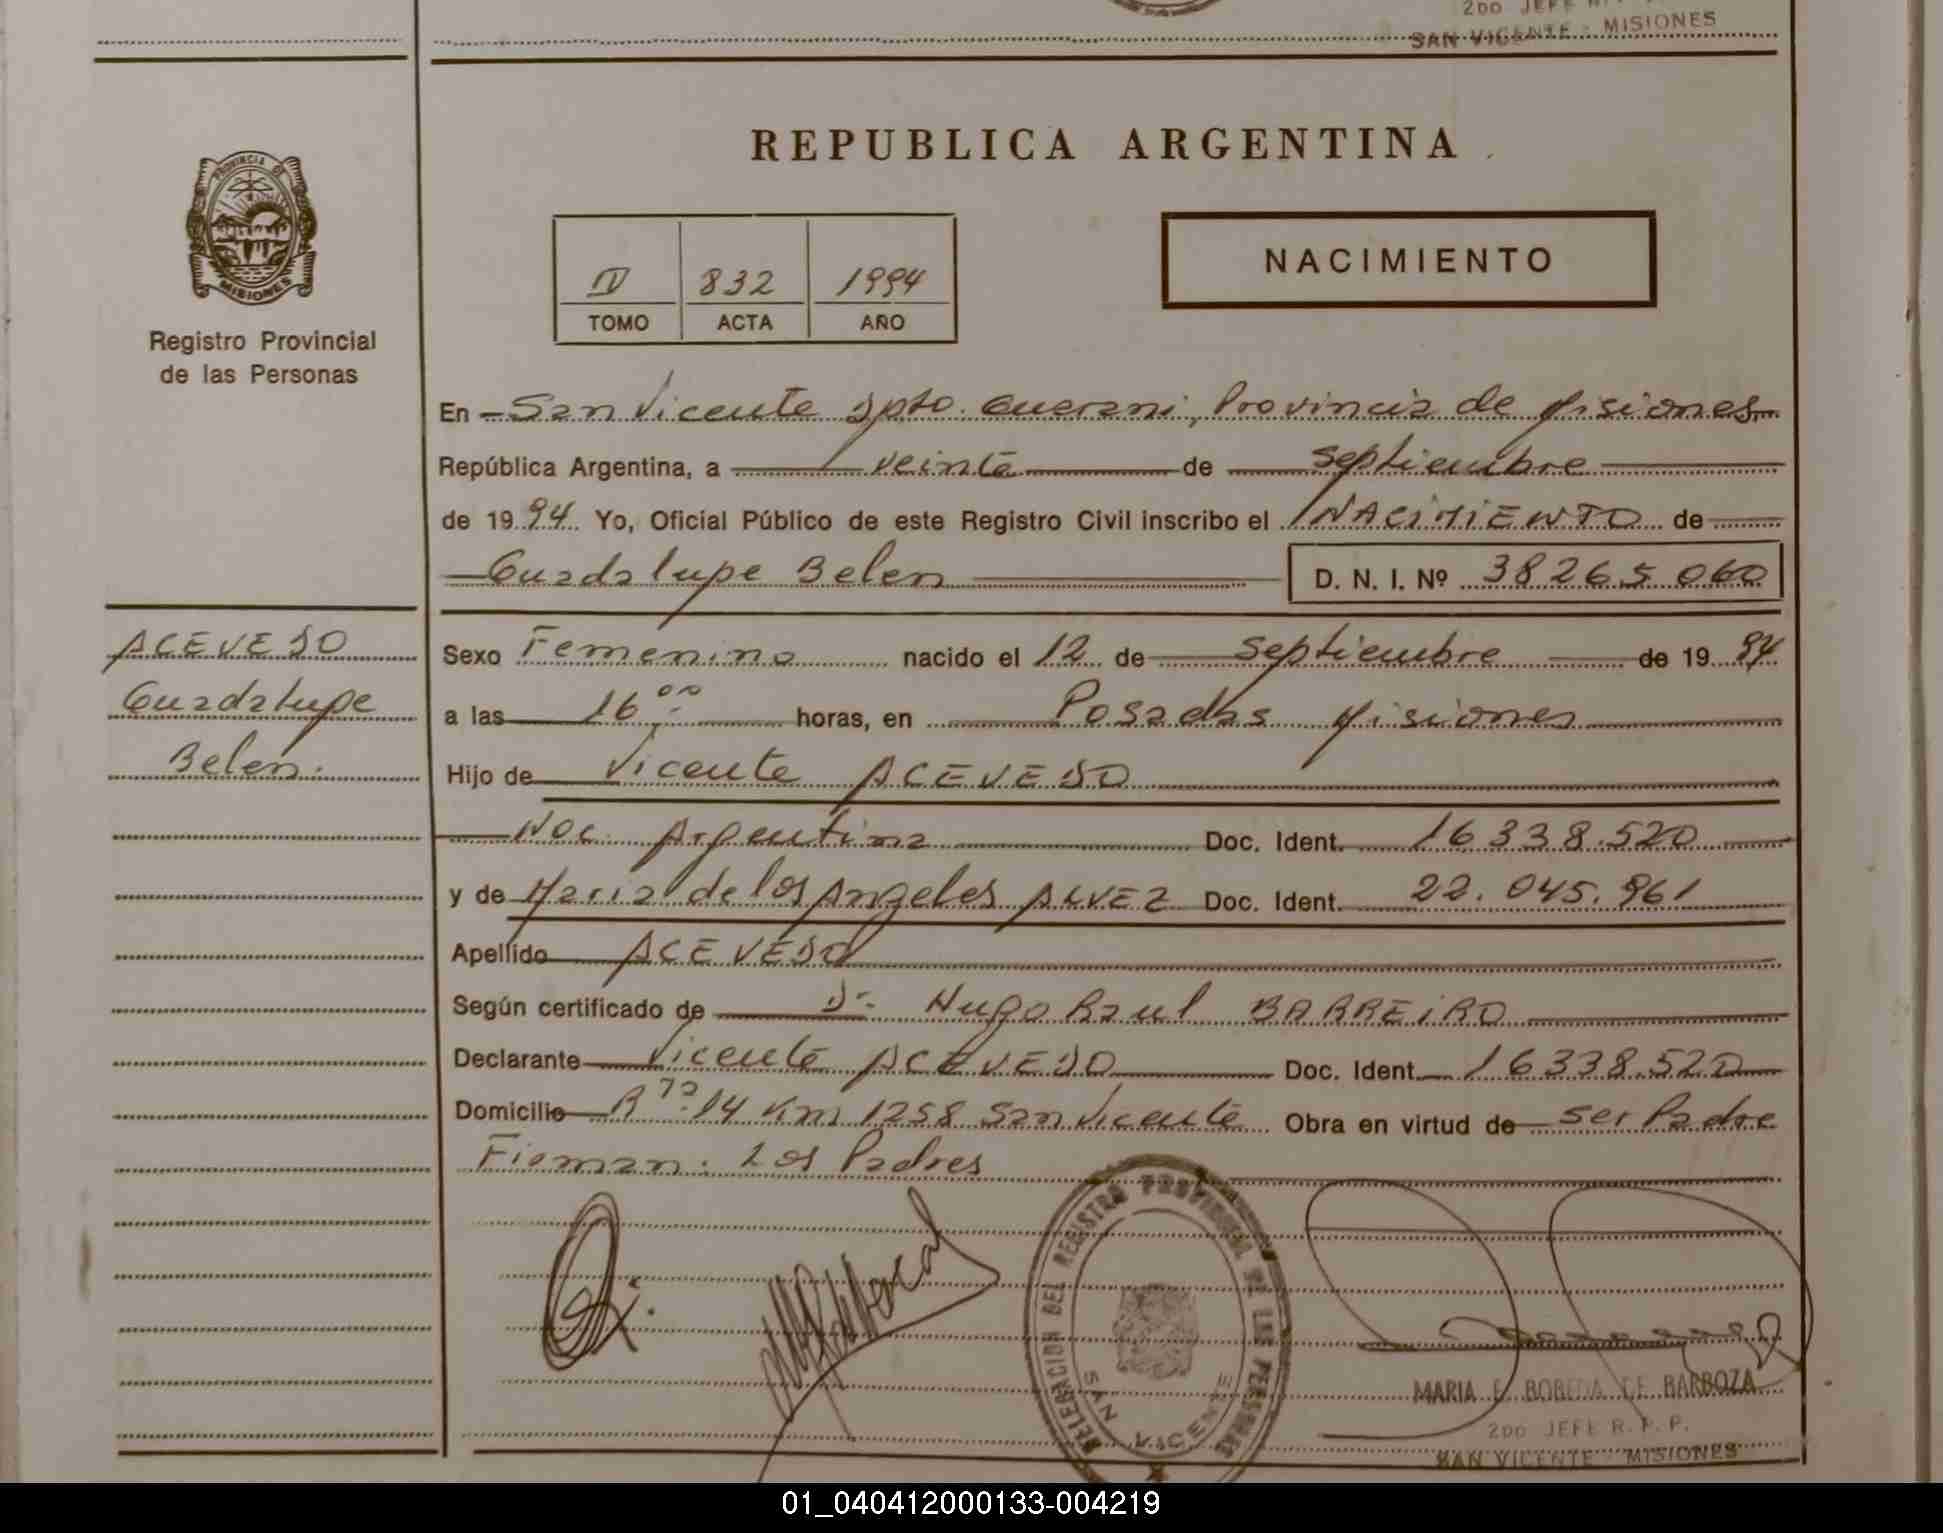 2DO JEFE R.
SAN VICENTE - MISIONES
REPUBLICA ARGENTINA
PROVINCIA DE
MISIONES
Registro Provincial
de las Personas
NACIMIENTO
II 832 1994
TOMO ACTA AÑO
En San Vicente Dpto. Guarani, Provincia de Misiones
República Argentina, a veinte de septiembre
de 1994 Yo, Oficial Público de este Registro Civil inscribo el NACIMIENTO de
Guadalupe Belen D. N. I. Nº 38265060
ACEVEDO
Guadalupe
Belen.
Sexo Femenino nacido el 12 de septiembre de 1994
a las 16 00 horas, en Posadas Misiones
Hijo de Vicente ACEVEDO
Nac. Argentina Doc. Ident. 16338.520
y de Maria de los Angeles ALVEZ Doc. Ident. 22.045.961
Apellido ACEVEDO
Según certificado de Dr. Hugo Raul BARREIRO
Declarante Vicente ACEVEDO Doc. Ident. 16338.520
Domicilio R 14 Km 1258 San Vicente Obra en virtud de ser Padre
Firman. Los Padres
DELEGACION DEL REGISTRO PROVINCIAL DE LAS PERSONAS
SAN VICENTE
MARIA E. BOBEDA DE BARBOZA
2DO JEFE R. P. P.
SAN VICENTE MISIONES
01_040412000133-004219